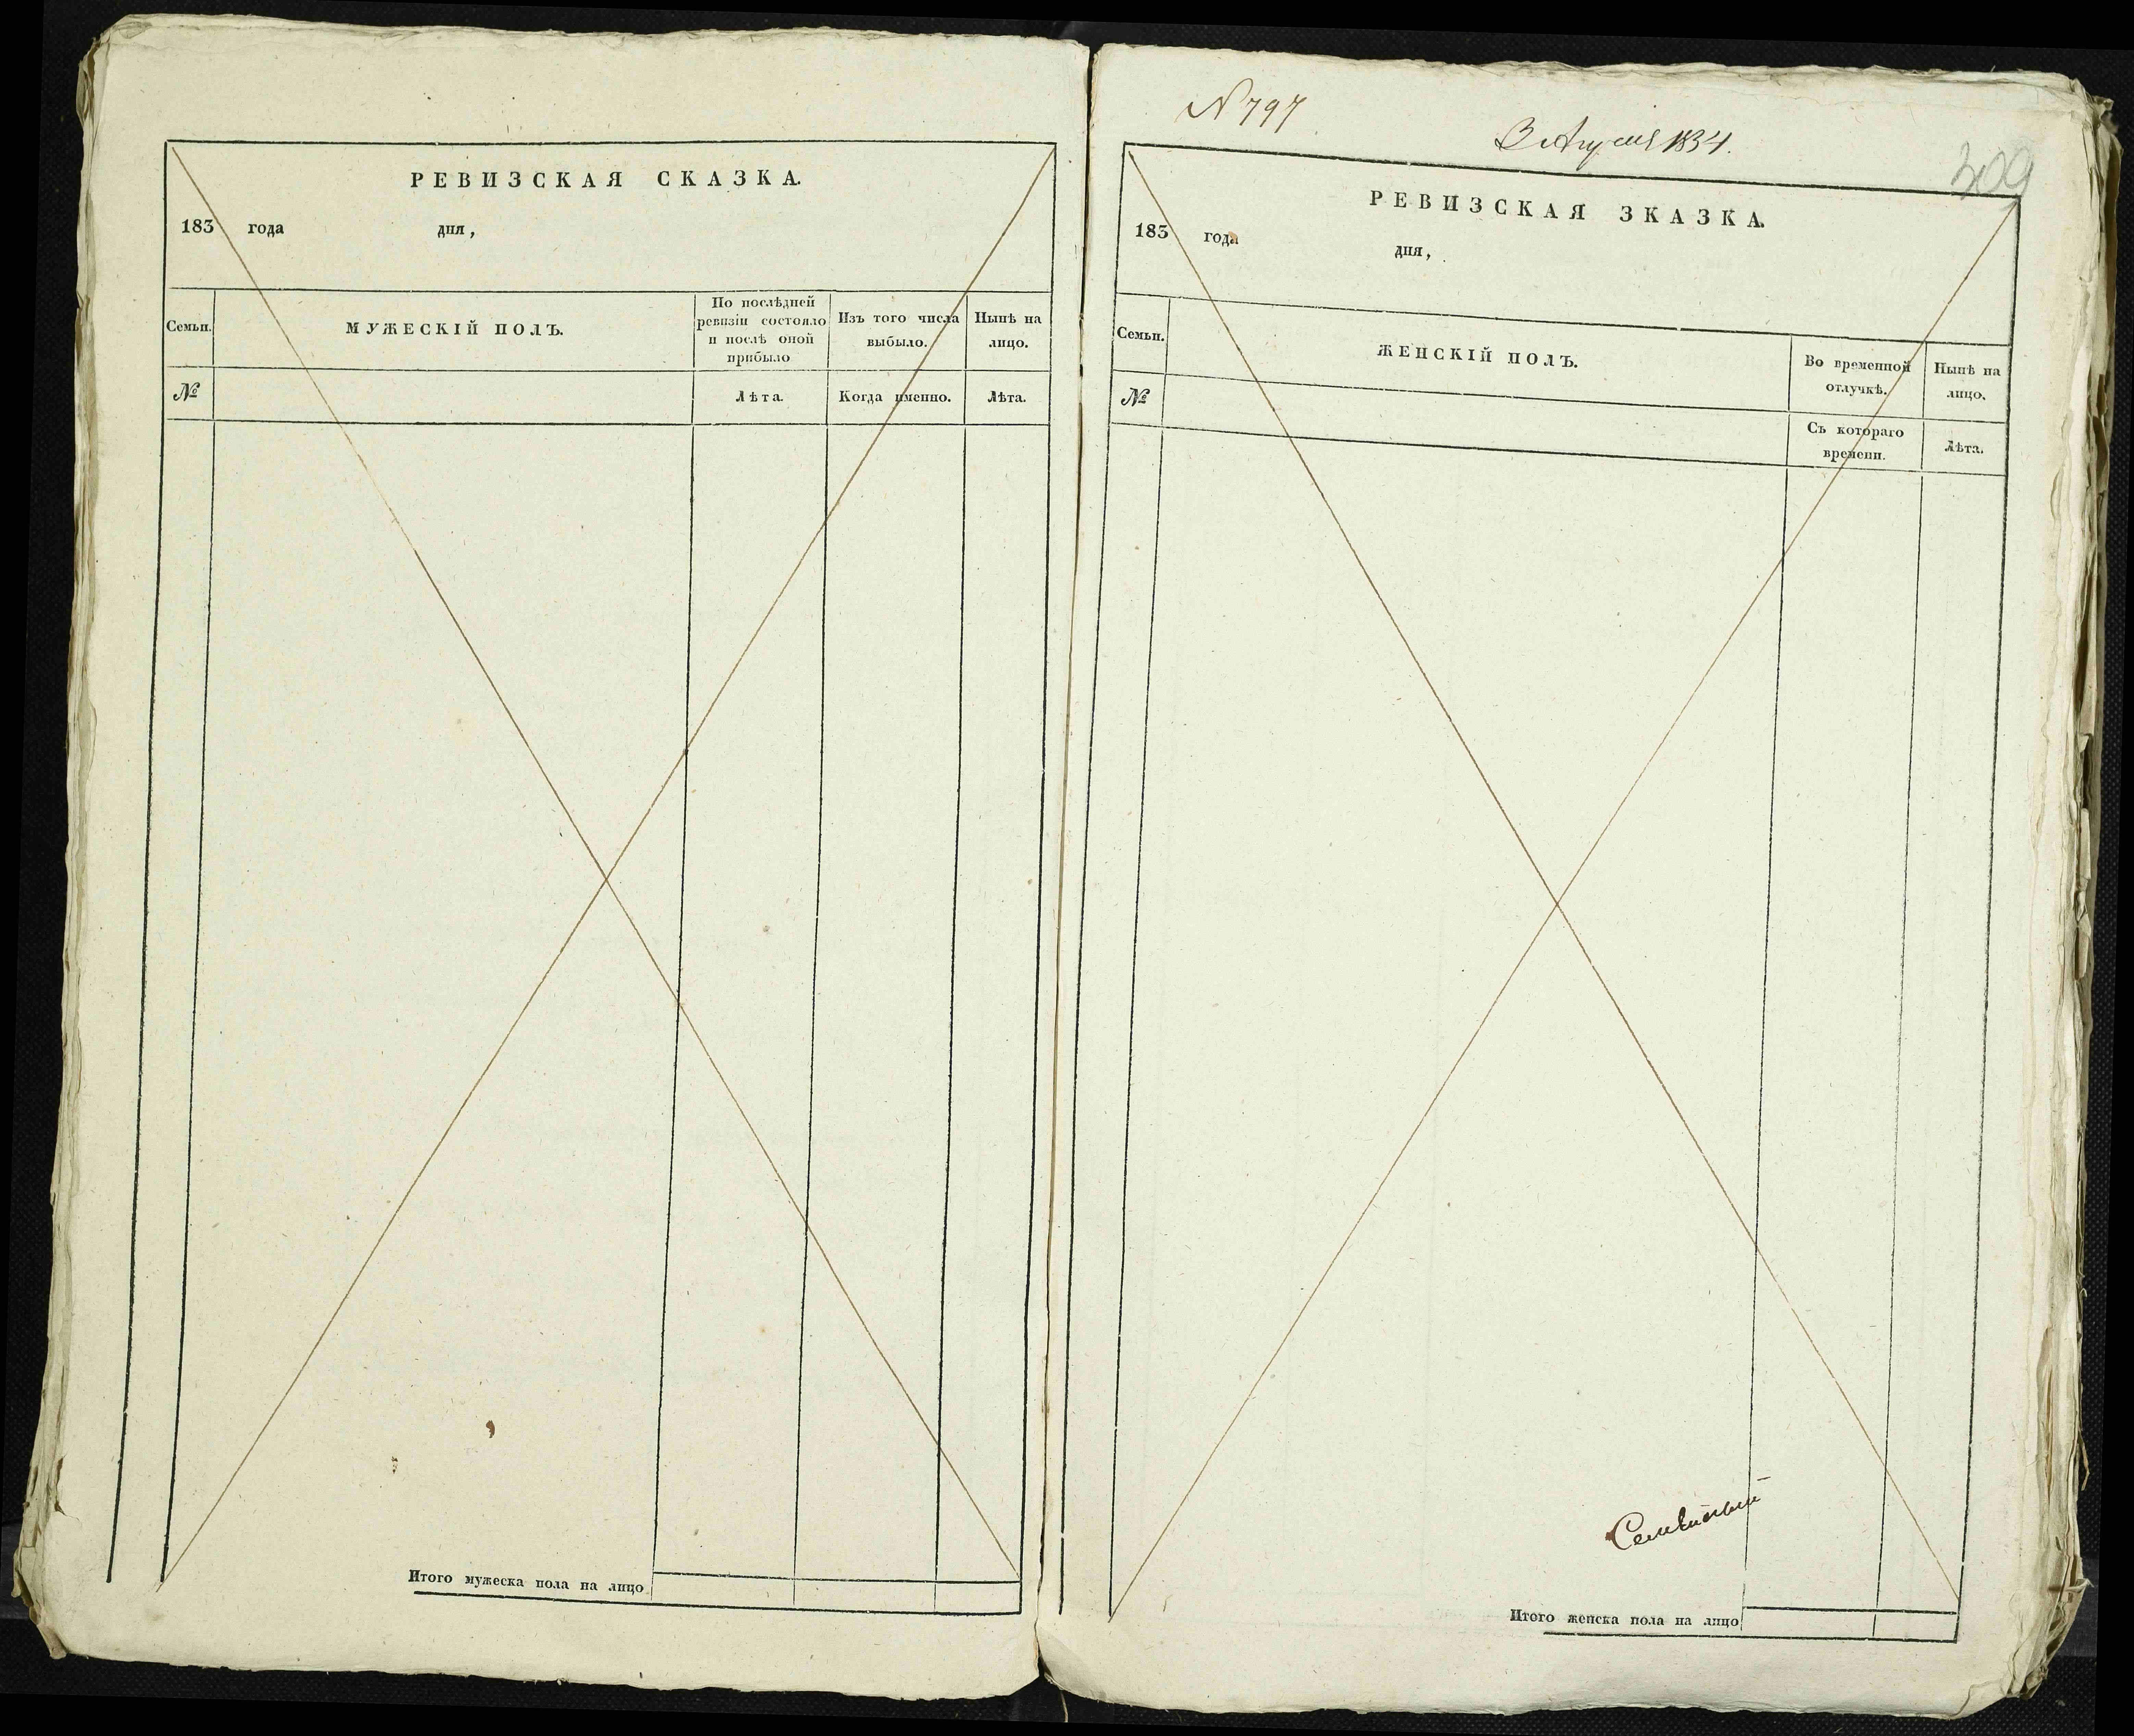 РЕВИЗСКАЯ СКАЗКА.
183 года дня,
Семьи.
МУЖЕСКІЙ ПОЛЪ.
По послѣдней
ревизіи состояло
и послѣ оной
прибыло
Изъ того числа
выбыло.
Нынѣ на
лицо.
№
Лѣта.
Когда именно.
Лѣта.
Итого мужеска пола на лицо
N 797
3 Августа 1834.
309
РЕВИЗСКАЯ ЗКАЗКА.
183 года дня,
Семьи.
ЖЕНСКІЙ ПОЛЪ.
Во временной
отлучкѣ.
Нынѣ на
лицо.
№
Съ котораго
времени.
Лѣта.
Итого женска пола на лицо